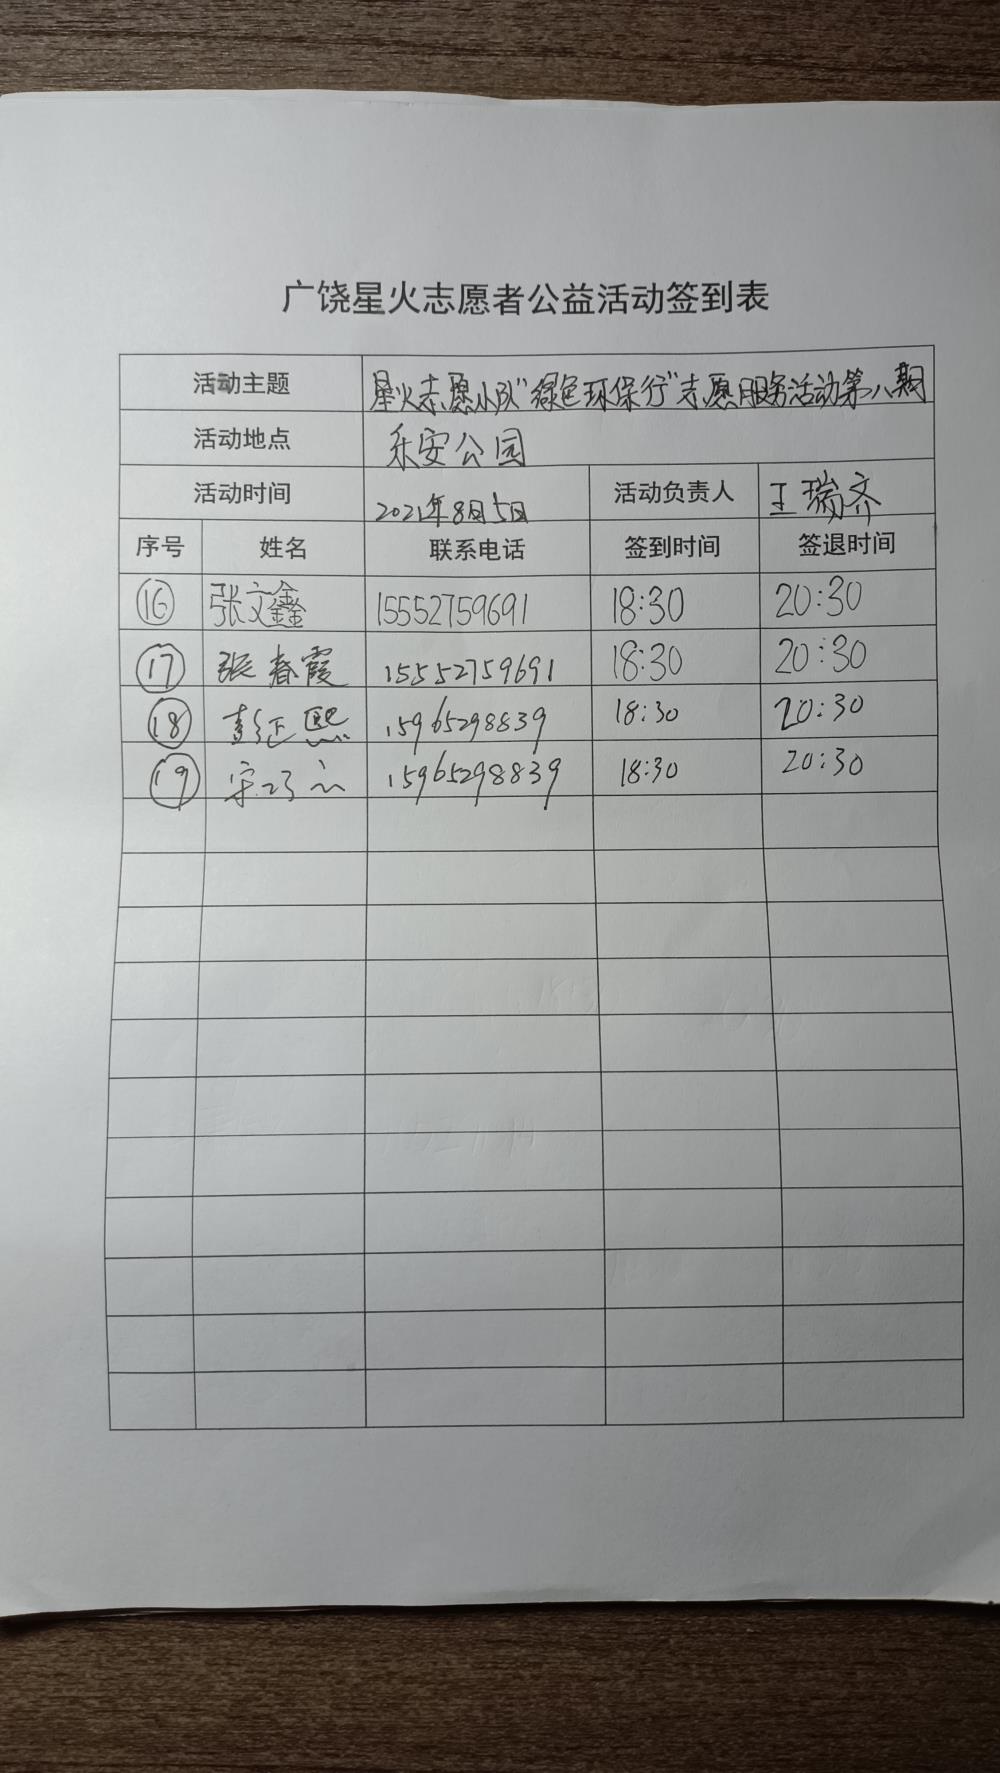 广饶星火志愿者公益活动签到表
活动主题 星火志愿小队“绿色环保行”志愿服务活动第八期
活动地点 乐安公园
活动时间 2021年8月5日 活动负责人 王瑞齐
序号 姓名 联系电话 签到时间 签退时间
⑯ 张文鑫 15552759691 18:30 20:30
⑰ 张春霞 15552759691 18:30 20:30
⑱ 彭正熙 15965298839 18:30 20:30
⑲ 宋 15965298839 18:30 20:30